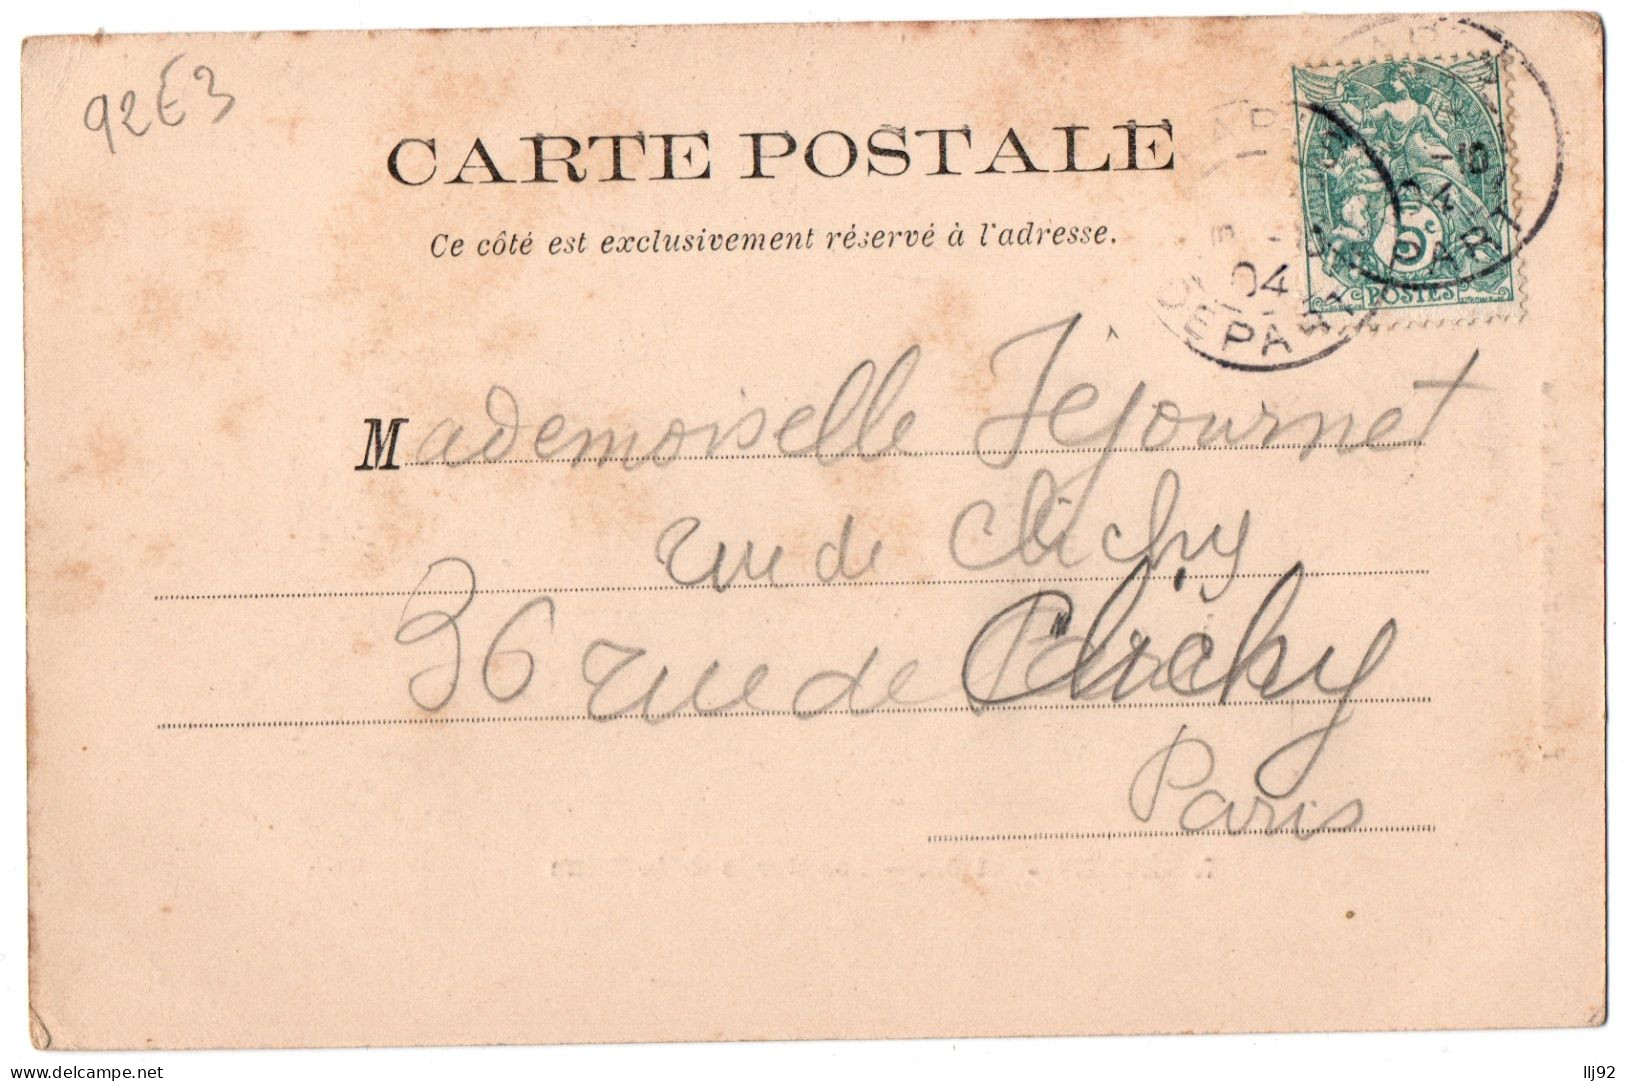 92E3
CARTE POSTALE
Ce côté est exclusivement réservé à l'adresse.
5c
POSTES
04
PART
04
PARIS
Mademoiselle Jejournet
rue de Clichy
36 rue de Clichy
Paris
delcampe.net
llj92